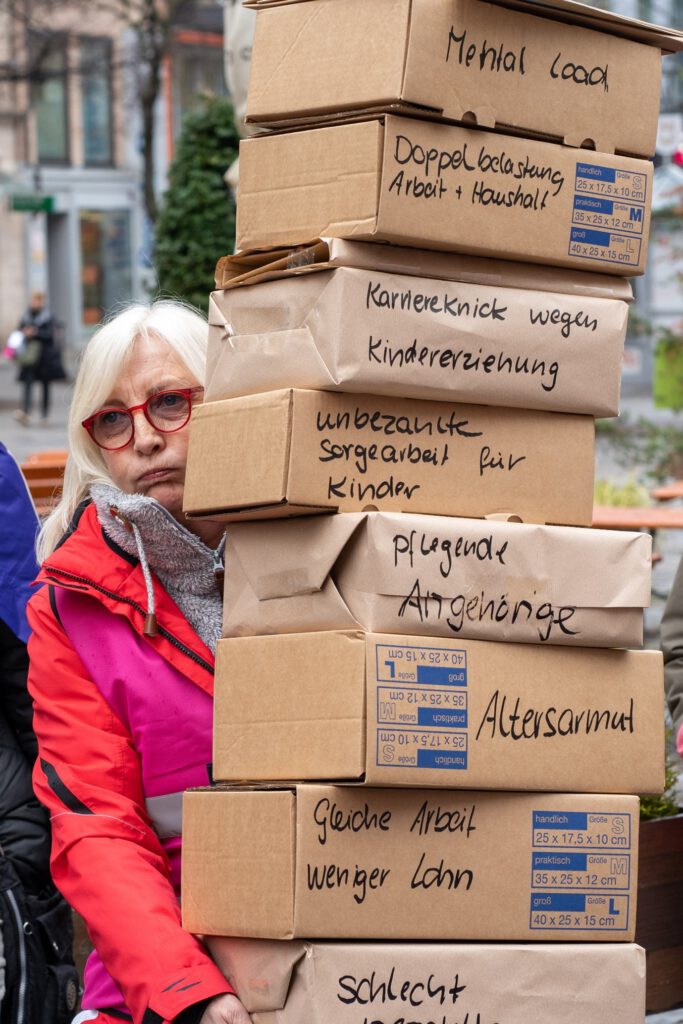 Mental Load
Doppelbelastung
Arbeit + Haushalt
handlich Größe
25 x 17,5 x 10 cm S
praktisch Größe
35 x 25 x 12 cm M
groß Größe
40 x 25 x 15 cm L
Karriereknick wegen
Kindererziehung
unbezahlte
Sorgearbeit für
Kinder
Pflegende
Angehörige
40 x 25 x 15 cm
L Größe groß
35 x 25 x 12 cm
M Größe praktisch
25 x 17,5 x 10 cm
S Größe handlich
Altersarmut
Gleiche Arbeit
weniger Lohn
handlich Größe
25 x 17,5 x 10 cm S
praktisch Größe
35 x 25 x 12 cm M
groß Größe
40 x 25 x 15 cm L
Schlecht